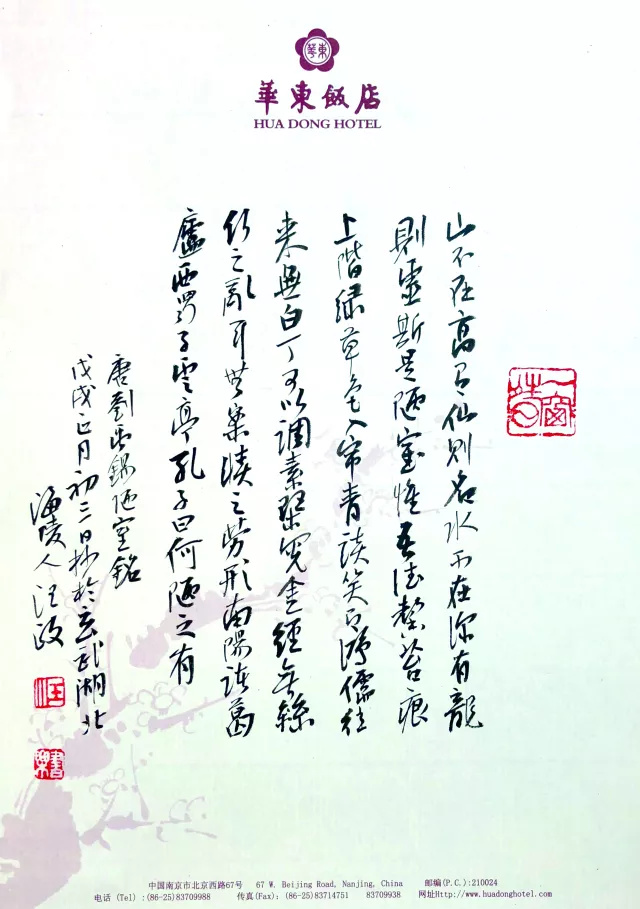 華東
華東飯店
HUA DONG HOTEL
山不在高有仙则名水不在深有龍
則靈斯是陋室惟吾德馨苔痕
上階緑草色入帘青談笑有鴻儒往
來無白丁可以調素琴閲金經無絲
竹之亂耳無案牘之勞形南陽諸葛
廬西蜀子雲亭孔子曰何陋之有
唐劉禹錫陋室銘
戊戌正月初三日抄於玄武湖北
海陵人汪政
汪
中国南京市北京西路67号 67 W. Beijing Road, Nanjing, China 邮编(P.C.):210024
电话 (Tel) :(86-25)83709988 传真(Fax): (86-25)83714751 83709938 网址Http://www.huadonghotel.com